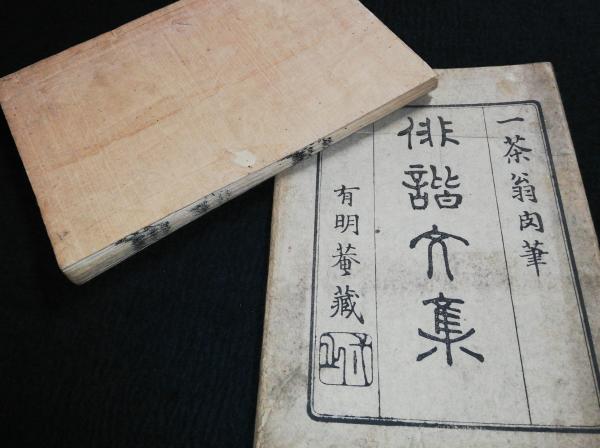 一茶翁肉筆
俳諧文集
有明菴藏